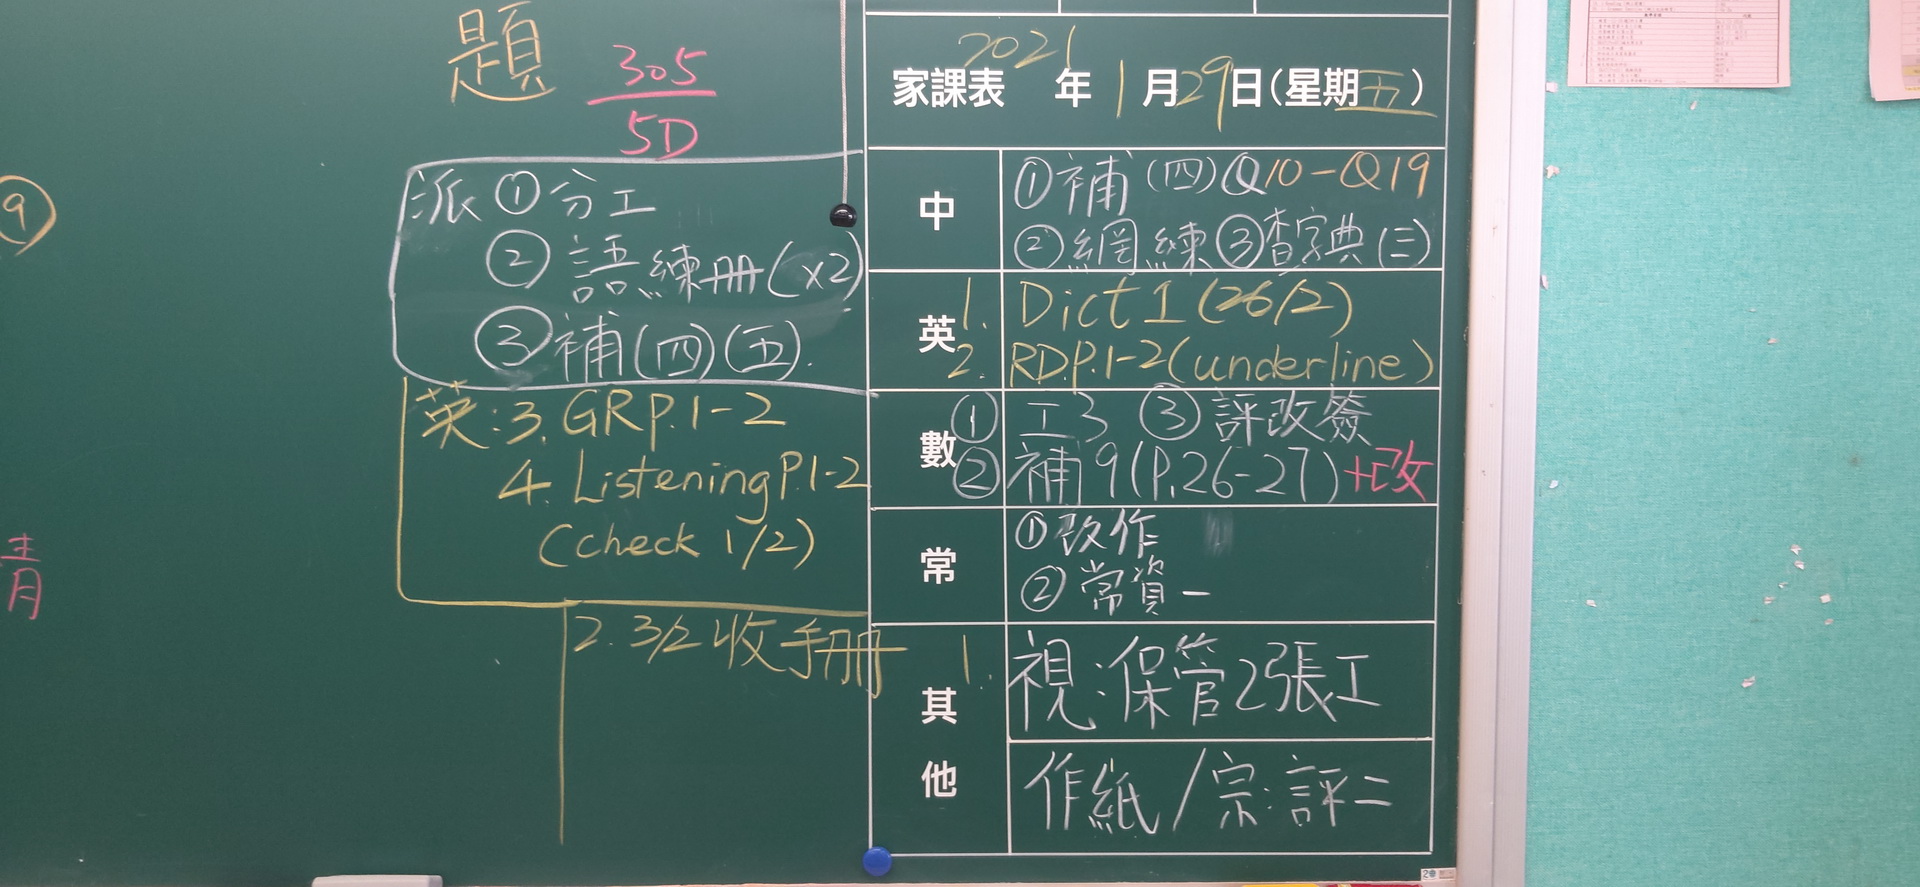 題
305
5D
9
青
派 ① 分工
② 語練冊(x2)
③ 補(四)(五).
英:3. GR P.1-2
4. Listening P.1-2
(check 1/2)
2. 3/2 收手冊
家課表 2021年1月29日(星期五)
中
①補(四)Q10-Q19
②網練③查字典(三)
英
1. Dict 1 (26/2)
2. RD P.1-2 (underline)
數
① 工3 ③ 評改簽
② 補9(P.26-27)+改
常
①改作
②常資一
其他
1. 視:保管2張工
作紙/宗:評二